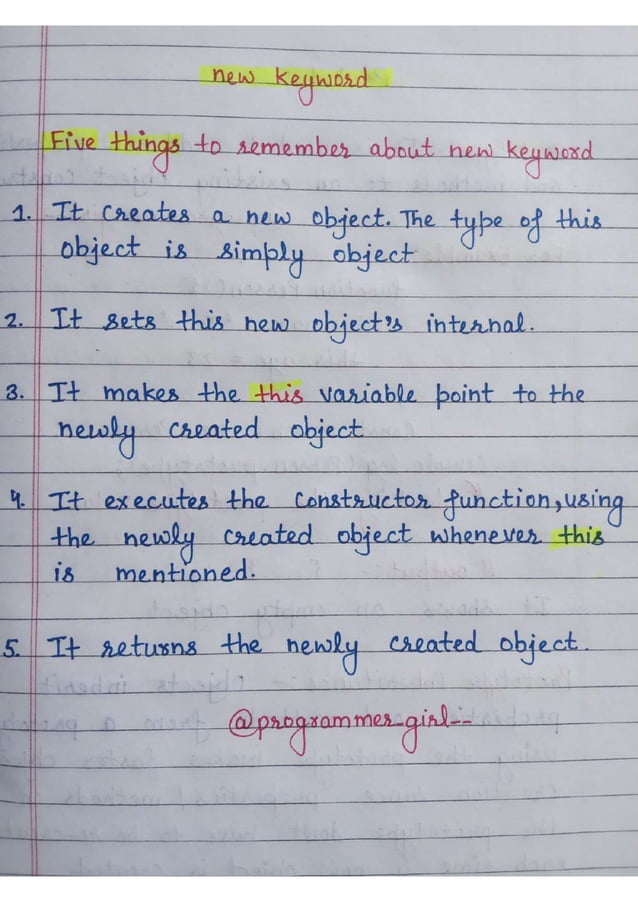 new keyword
Five things to remember about new keyword
1. It creates a new object. The type of this
object is simply object
2. It sets this new object's internal.
3. It makes the this variable point to the
newly created object
4. It executes the constructor function, using
the newly created object whenever this
is mentioned.
5. It returns the newly created object.
@programmer_girl--